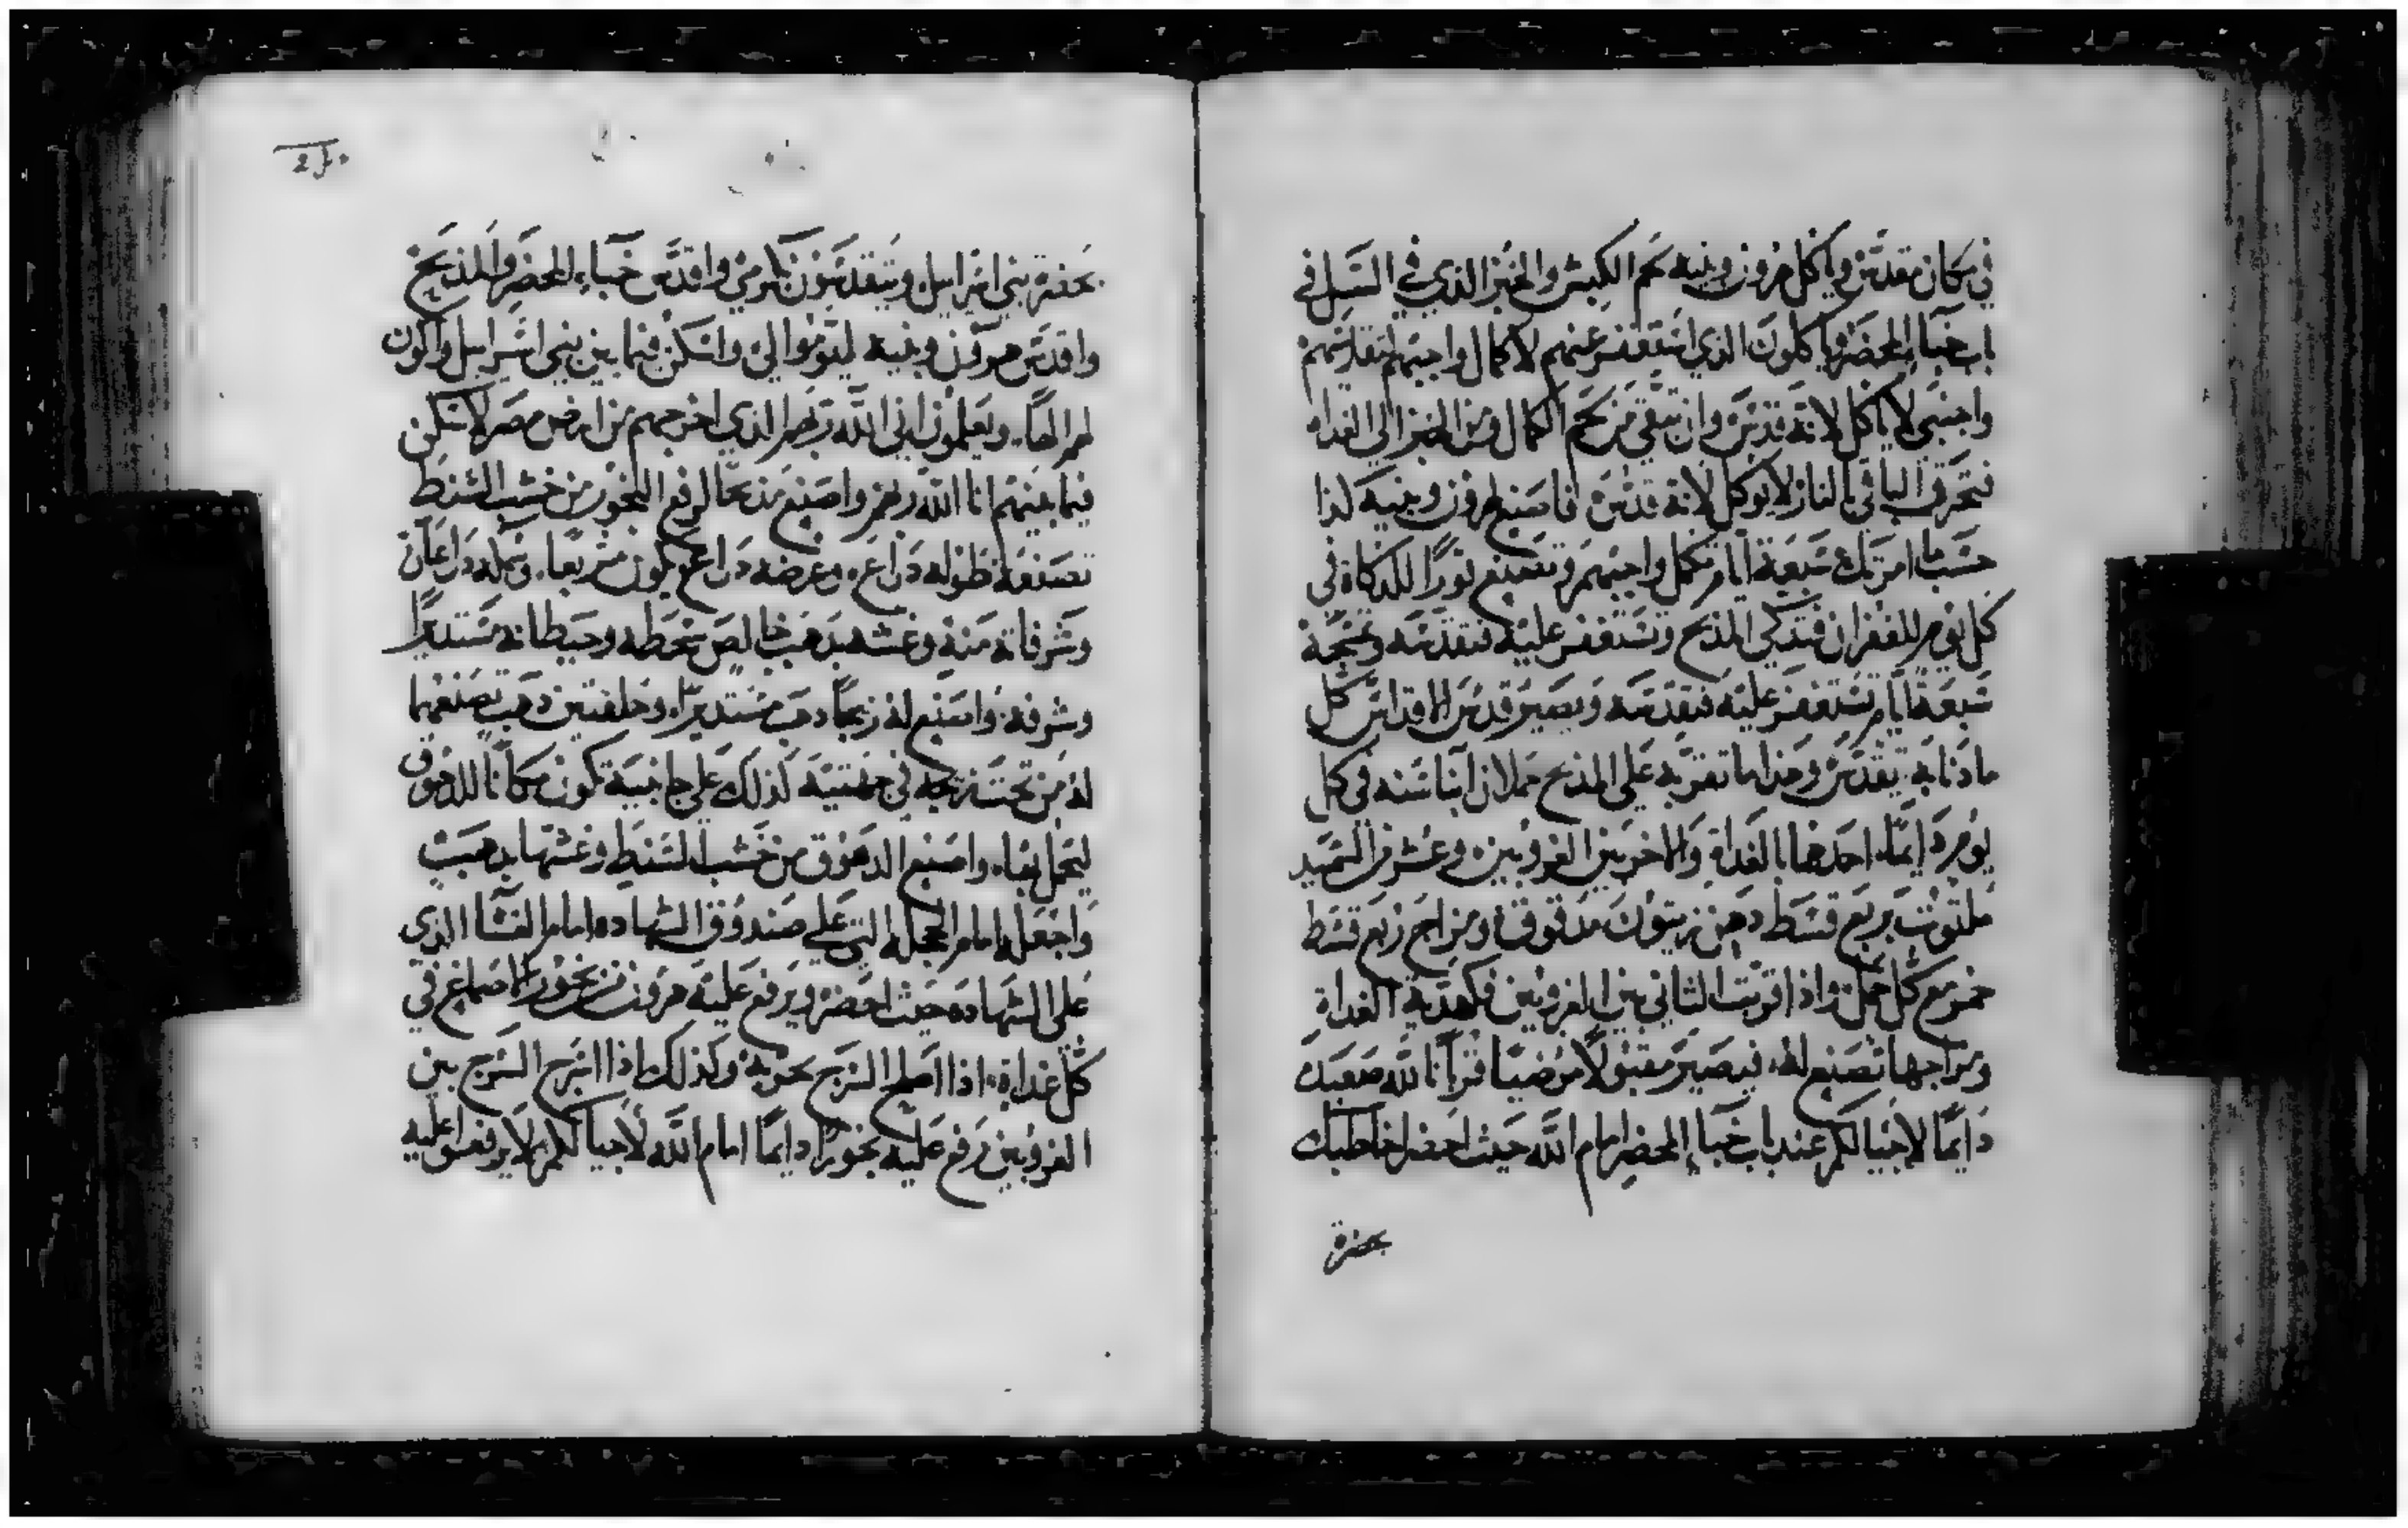 في مكان مقدس وياكل هرون وبنيه لحم الكبش والخبز الذي في السل في
باب خباء المحضر ياكلون الذي استغفر عنهم لاكمال واجبهم لتقديسهم
واجنبي لا ياكل لانه قدس وان تبقى من لحم الكمال ومن الخبز الى الغداه
فتحرق الباقي بالنار لا يوكل لانه قدس فاصنع لهرون وبنيه كذا
حسب ما امرتك سبعة ايام تكمل واجبهم وتصنع ثورا للذكاة في
كل يوم للغفران فتذكي المذبح وتستغفر عليه فتقدسه وتمسحه
سبعة ايام تستغفر عليه فتقدسه ويصير قدس الاقداس كل
مادنا به يتقدس وهذا ما تقربه على المذبح حملان ابنا سنه في كل
يوم دايما احدهما بالغداة والاخر بين الغروبين وعشر من السميد
ملتوت بربع قسط دهن زيتون مدقوق ومزاج ربع قسط
خمر مع كل حمل واذا قربت الثاني بين الغروبين فكهدية الغداة
ومزاجها تصنع له فيصير مقبولا مرضيا قربانا لله صعيدك
دايما لاجيالكم عند باب خباء المحضر امام الله حيث احضر اخاطبك
بحضرة
٤٠
بحضرة بني اسراييل ويتقدسون بكرمي واقدس خباء المحضر والمذبح
واقدس هرون وبنيه ليقوموا لي واسكن فيما بين بني اسراييل واكون
لهم الها ويعلمون اني الله ربهم الذي اخرجهم من ارض مصر لاسكن
فيما بينهم انا الله ربهم واصنع مذبحا لرفع البخور من خشب السنط
تصنعه طوله دراع وعرضه دراع يكون مربعا وسمكه دراعان
وشرفاته منه وغشه بذهب خالص سطحه وحيطانه مستديرا
وشرفه واصنع له زيجا دهب مستديرا وحلقتين دهب تصنعهما
له من تحت زيجه في جهتيه كذلك على جانبيه تكون مكانا للدهوق
ليحمل بها واصنع الدهوق من خشب السنط وغشها بدهب
واجعله امام الحجله التي على صندوق الشهاده امام الغشا الذي
على الشهاده حيث احضر ويرفع عليه هرون من بخور الاصماغ في
كل غداة اذا اصلح السرج بخر به وكذلك اذا اسرج السرج بين
الغروبين رفع عليه بخورا دايما امام الله لاجيالكم لا يرفعوا عليه